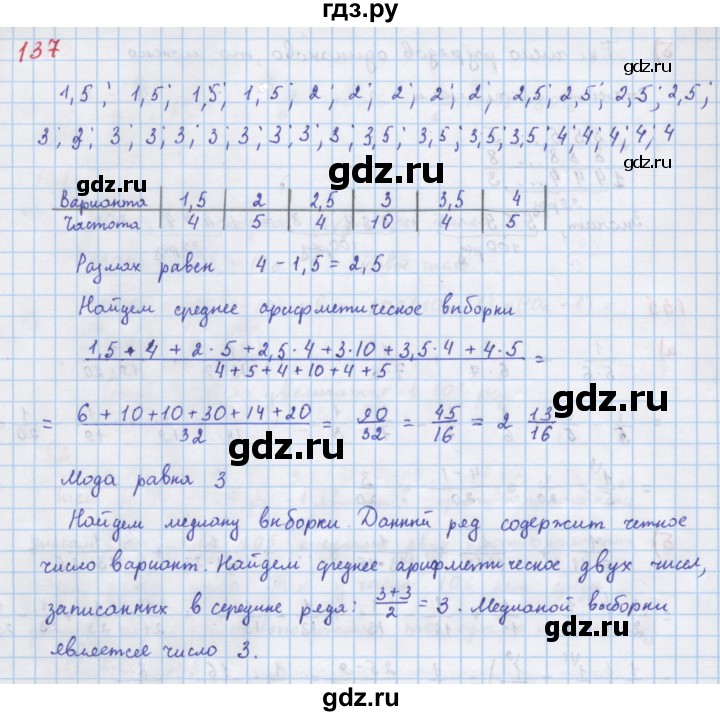 гдз.ру
137
1,5; 1,5; 1,5; 1,5; 2; 2; 2; 2; 2; 2,5; 2,5; 2,5; 2,5;
3; 3; 3; 3; 3; 3; 3; 3; 3; 3; 3,5; 3,5; 3,5; 3,5; 4; 4; 4; 4; 4
gdz.ru gdz.ru
Варианта | 1,5 | 2 | 2,5 | 3 | 3,5 | 4 |
Частота | 4 | 5 | 4 | 10 | 4 | 5 |
Размах равен 4 - 1,5 = 2,5
Найдем среднее арифметическое выборки
gdz.ru
1,5 · 4 + 2 · 5 + 2,5 · 4 + 3 · 10 + 3,5 · 4 + 4 · 5 =
4 + 5 + 4 + 10 + 4 + 5
= 6 + 10 + 10 + 30 + 14 + 20 / 32 = 90/32 = 45/16 = 2 13/16
gdz.ru
Мода равна 3
Найдем медиану выборки. Данный ряд содержит четное
число вариант. Найдем среднее арифметическое двух чисел,
записанных в середине ряда: (3+3)/2 = 3. Медианой выборки
gdz.ru
является число 3.
gdz.ru